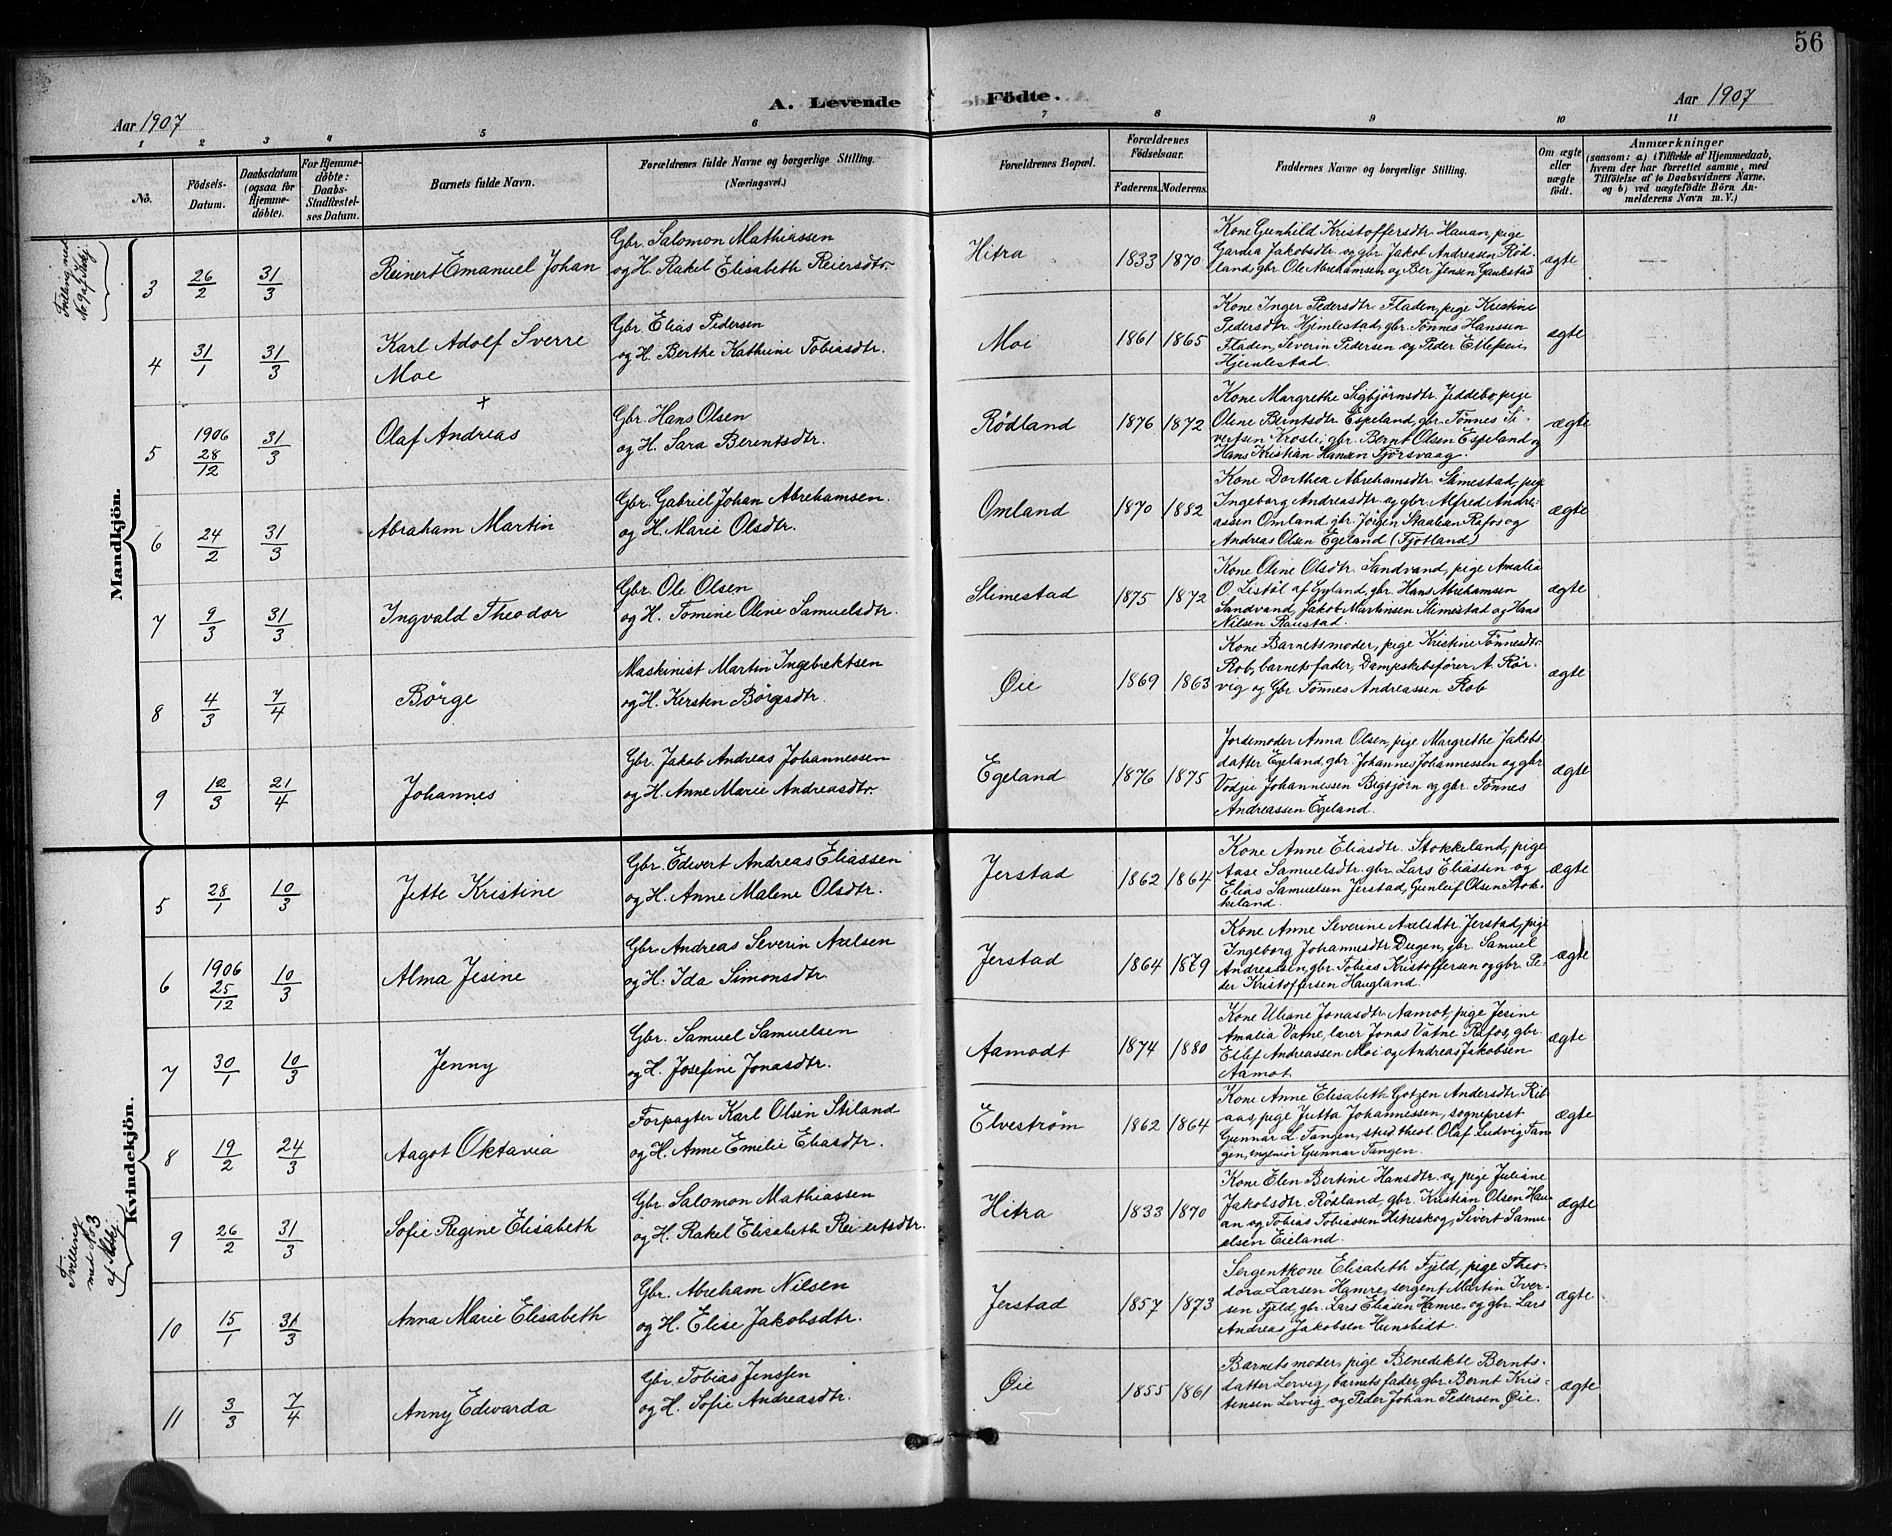 56
A. Levende Födte.
Aar 1907
Aar 1907
1 2 3 4 5 6 7 8 9 10 11
No.
Födsels-Datum.
Daabsdatum (ogsaa for Hjemme-döbte).
For Hjemme-döbte: Daabs-Stadfæstel-ses Datum.
Barnets fulde Navn.
Forældrenes fulde Navne og borgerlige Stilling. (Næringsvei.)
Forældrenes Bopæl.
Forældrenes Födselsaar.
Faderens. Moderens.
Faddernes Navne og borgerlige Stilling.
Om ægte eller uægte födt.
Anmærkninger
(saasom: a) i Tilfælde af Hjemmedaab, hvem der har forrettet samme, med Tilföielse af to Daabsvidners Navne, og b) ved uægtefödte Börn An-melderens Navn m. V.)
Mandkjön.
Tvilling med No 9 af Kvkj
3 26/2 31/3 Reinert Emanuel Johan
Gbr. Salomon Mathiassen
og H. Rakel Elisabeth Reiersdtr.
Hitra 1833 1870
Kone Gunhild Kristoffersdtr. Hauan, pige
Gardia Jakobsdtr. og gbr. Jakob Andreassen Röd-
land, gbr. Ole Abrahamsen og Ber Jensen Gaukstad
ægte
4 31/1 31/3 Karl Adolf Sverre
Moe
Gbr. Elias Pedersen
og H. Berthe Kathrine Tobiasdtr.
Moi 1861 1865
Kone Inger Pedersdtr. Fladen, pige Kristine
Pedersdtr. Hjemlestad, gbr. Tönnes Hanssen
Fladen, Severin Pedersen og Peder
Hjemlestad.
ægte
5 1906 28/12 31/3 Olaf Andreas
Gbr. Hans Olsen
og H. Sara Berentsdtr.
Rødland 1876 1872
Kone Margrethe Sigbjørnsdtr. Jeddebo, pige
Oline Berntsdtr. Espeland, gbr. Tönnes Si-
vertsen Trosli, gbr. Bernt Olsen Espeland og
Hans Kristian Hansen Fjörsvaag.
ægte
6 24/2 31/3 Abraham Martin
Gbr. Gabriel Johan Abrehamsen.
og H. Marie Olsdtr.
Omland 1870 1882
Kone Dorthea Abrehamsdtr. Slimestad, pige
Ingeborg Andreasdtr. og gbr. Alfred Andre-
assen Omland, gbr. Jörgen Staalsen Rafos og
Andreas Olsen Egeland (Fjotland)
ægte
7 9/3 31/3 Ingvald Theodor
Gbr. Ole Olsen
og H. Tomine Oline Samuelsdtr.
Slimestad 1875 1872
Kone Oline Olsdtr. Sandvand, pige Amalia
O. Listöl af Gyland, gbr. Hans Abrehamsen
Sandvand, Jakob Martinsen Slimestad og Hans
Nilsen Raustad.
ægte
8 4/3 7/4 Börge
Maskinist Martin Ingebrektsen
og H. Kersten Börgesdtr.
Øie 1869 1863
Kone Barnets moder, pige Kristine Tönnesdtr.
Rob, barnets fader, Dampskibsfører A. Rör-
vig og Gbr. Tönnes Andreassen Rob
ægte
9 12/3 21/4 Johannes
Gbr. Jakob Andreas Johannessen
og H. Anne Marie Andreasdtr.
Egeland 1876 1875
Jordemoder Anna Olsen, pige Margrethe Jakobs-
datter Egeland, gbr. Johannes Johannessen og gbr
Johannessen Bigbjörn og gbr. Tönnes
Andreassen Egeland.
ægte
Kvindekjön.
5 28/1 10/3 Jette Kristine
Gbr. Edvert Andreas Eliassen
og H. Anne Malene Olsdtr.
Jerstad 1862 1864
Kone Anne Eliasdtr. Stokkeland, pige
Aase Samuelsdtr. gbr. Lars Eliassen og
Elias Samuelsen Jerstad, Gunleif Olsen Stok-
keland.
ægte
6 1906 25/12 10/3 Alma Jesine
Gbr. Andreas Severin Axelsen
og H. Ida Simonsdtr.
Jerstad 1864 1879
Kone Anne Severine Axelsdtr. Jerstad, pige
Ingeborg Johannesdtr. Dugen, gbr. Samuel
Andreassen, gbr. Tobias Kristoffersen og gbr. Pe-
der Kristoffersen Haugland.
ægte
7 30/1 10/3 Jenny
Gbr. Samuel Samuelsen
og H. Josefine Jonasdtr.
Aamodt 1874 1880
Kone Uliane Jonasdtr. Aamot, pige Jesine
Amalia Vatne, lærer Jonas Vatne Rafos, gbr.
Eilef Andreassen Moi og Andreas Jakobsen
Aamot.
ægte
8 19/2 24/3 Aagot Oktavia
Forpagter Karl Olsen Stiland
og H. Anne Emelie Eliasdtr.
Elveström 1862 1864
Kone Anne Elisabeth Gotzen Andersdtr. Rib-
aas, pige Jutta Johannessen, sogneprest
Gunnar L. Tangen, stud. theol. Olaf Ludvig Tan-
gen, ingeniör Gunnar Tangen.
ægte
Tvilling med No 3 af Mkj.
9 26/2 31/3 Sofie Regine Elisabeth
Gbr. Salomon Mathiassen
og H. Rakel Elisabeth Reiersdtr.
Hitra 1833 1870
Kone Elen Bertine Hansdtr. og pige Juliane
Jakobsdtr. Rødland, gbr. Kristian Olsen Hau-
an og Tobias Tobiassen Hitreskog, Sivert Samu-
elsen Eieland.
ægte
10 15/1 31/3 Anna Marie Elisabeth
Gbr. Abreham Nilsen
og H. Elise Jakobsdtr.
Jerstad 1857 1873
Sergentkone Elisabeth Fjeld, pige Theo-
dora Larsen Hamre, sergent Martin Iver-
sen Fjeld, gbr. Lars Eliasen Hamre og gbr. Lars
Andreas Jakobsen Hunsbedt.
ægte
11 3/3 7/4 Anny Edvarda
Gbr. Tobias Jenssen
og H. Sofie Andreasdtr.
Øie 1855 1861
Barnets moder, pige Benedikte Bernts-
datter Lervig, barnets fader, gbr. Bernt Kris-
tensen Lervig og Peder Johan Pedersen Øie.
ægte